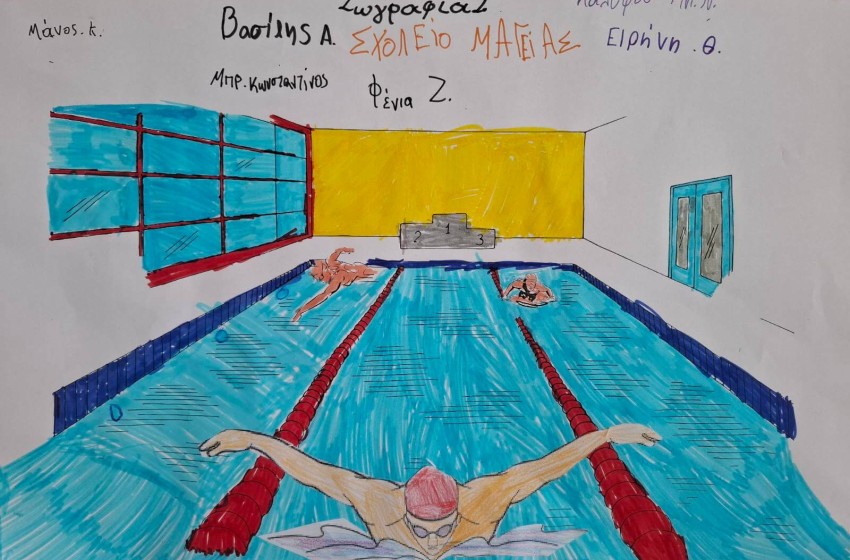 Ζωγραφιά
Μάνος.κ. Βασίλης Α. ΣΧΟΛΕΙΟ ΜΑΓΕΙΑΣ ΕΙΡΗΝΗ .Θ.
Μπρ. Κωνσταντίνος Φένια Ζ.
2 1 3